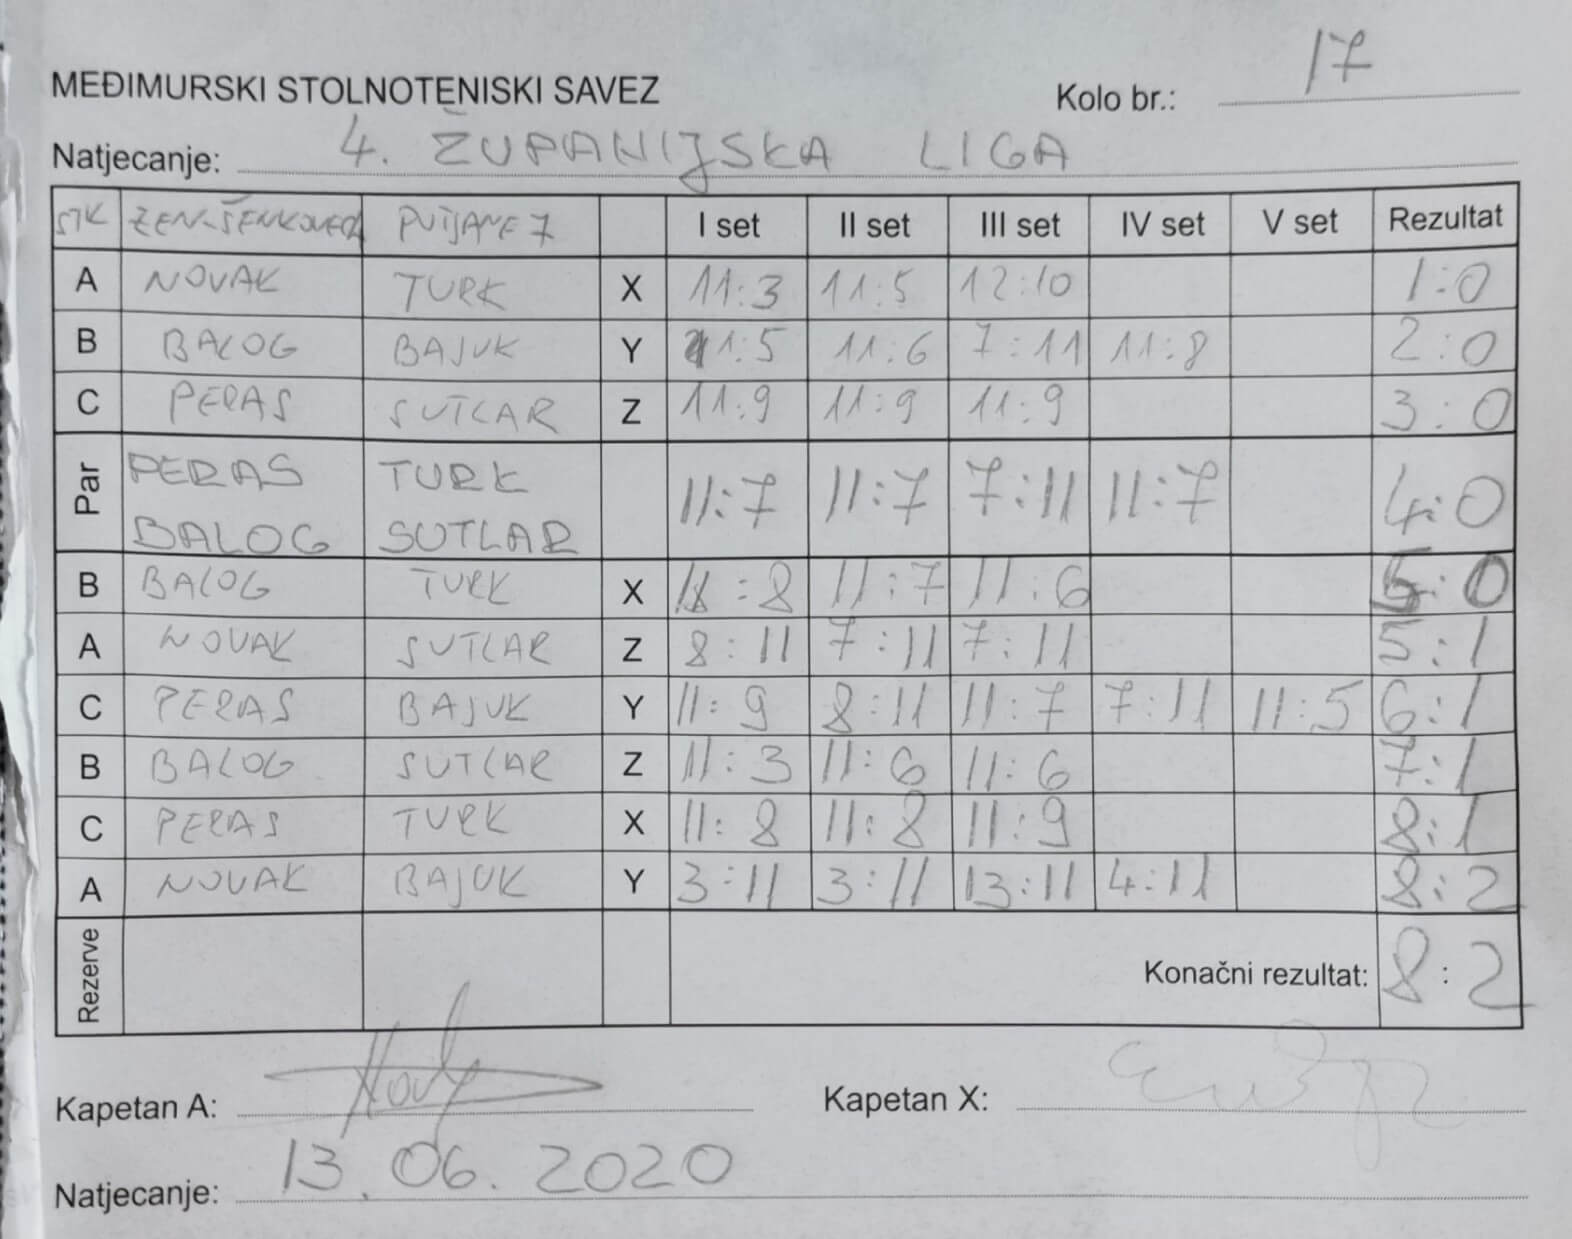 MEĐIMURSKI STOLNOTENISKI SAVEZ Kolo br.: 17
Natjecanje: 4. ŽUPANIJSKA LIGA
STK ZEN-ŠENKOVEC PUŠĆINE 7 I set II set III set IV set V set Rezultat
A NOVAK TURK X 11:3 11:5 12:10 1:0
B BALOG BAJUK Y 11:5 11:6 7:11 11:8 2:0
C PERAS SUTLAR Z 11:9 11:9 11:9 3:0
Par PERAS BALOG TURK SUTLAR 11:7 11:7 7:11 11:7 4:0
B BALOG TURK X 11:8 11:7 11:6 5:0
A NOVAK SUTLAR Z 8:11 7:11 7:11 5:1
C PERAS BAJUK Y 11:9 8:11 11:7 7:11 11:5 6:1
B BALOG SUTLAR Z 11:3 11:6 11:6 7:1
C PERAS TURK X 11:8 11:8 11:9 8:1
A NOVAK BAJUK Y 3:11 3:11 13:11 4:11 8:2
Rezerve Konačni rezultat: 8:2
Kapetan A: Kapetan X:
Natjecanje: 13.06.2020